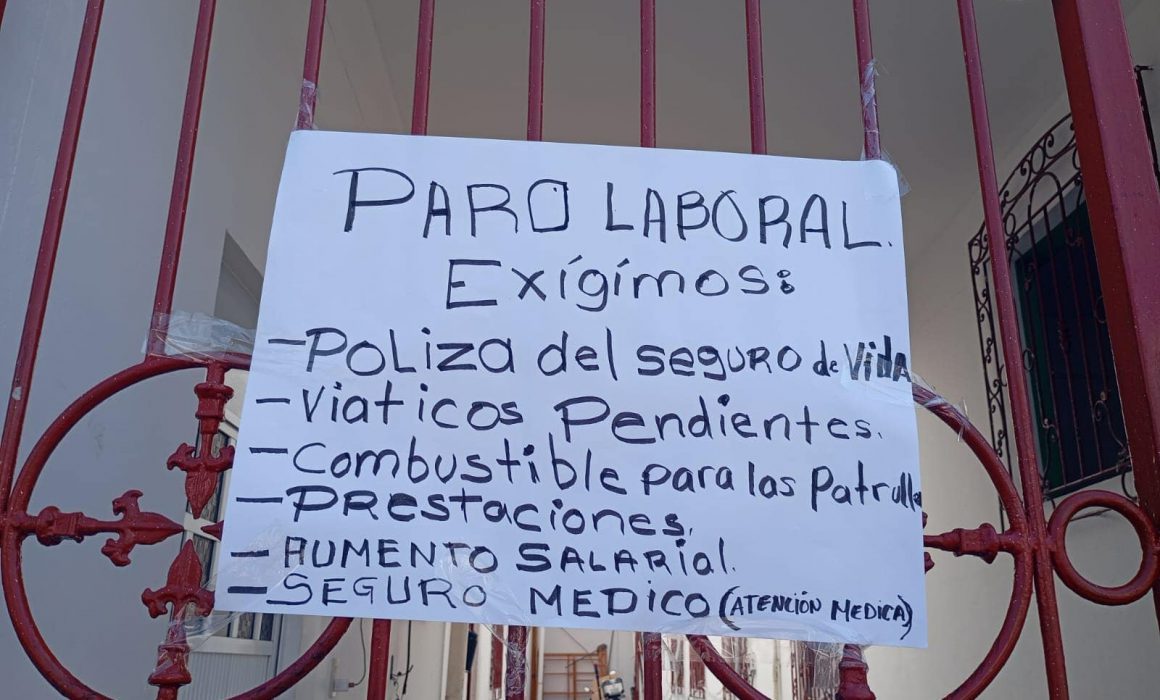 PARO LABORAL.
Exígímos:
-POLiza del SEGURO de VidA
-Viaticos Pendientes.
-Combustible para las Patrulla
-PREstaciones.
-AUMENTO SALARIal.
-SEGURO MEDICO (ATENCIÓN MEDICA)